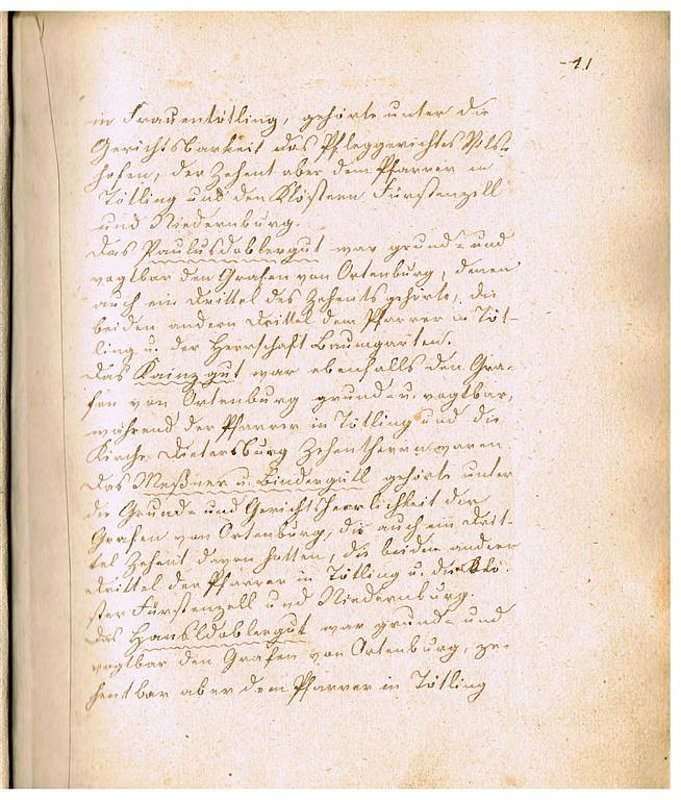 11
in Frauentötling, gehörte unter die
Gerichtsbarkeit des Pfleggerichtes Vils-
hofen, der Zehent aber dem Pfarrer in
Tötling und den Klöstern Fürstenzell
und Niedernburg.
Das Paulusdoblergut war grund- und
vogtbar den Grafen von Ortenburg, denen
auch ein Drittel des Zehents gehörte, die
beiden andern Drittel dem Pfarrer in Töt-
ling u. der Herrschaft Baumgarten.
Das Kainzgut war ebenfalls den Gra-
fen von Ortenburg grund- u. vogtbar,
während der Pfarrer in Tötling und die
Kirche Dietersburg Zehentherrn waren.
Das Meßner u. Bindergütl gehörte unter
die Grund- und Gerichtsherrlichkeit der
Grafen von Ortenburg, die auch ein Drit-
tel Zehent davon hatten, die beiden andern
Drittel der Pfarrer in Tötling u. die Klö-
ster Fürstenzell und Niedernburg.
Das Hansldoblergut war grund- und
vogtbar den Grafen von Ortenburg, ze-
hentbar aber dem Pfarrer in Tötling